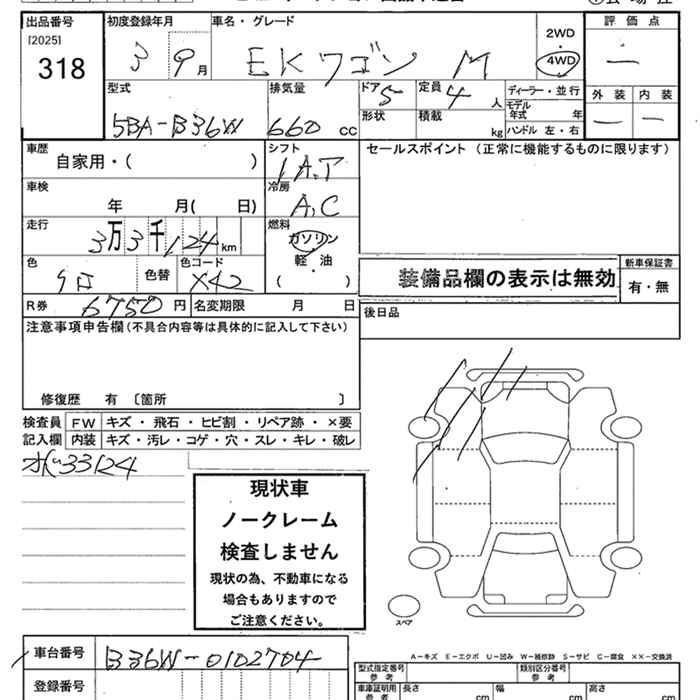 出品番号 初度登録年月 車名・グレード 2WD 評価点
[2025] ・
318 3 9月 EKワゴン M 4WD 一
型式 排気量 ドア 5 定員 4人 ディーラー・並行 外装 内装
5BA-B36W 660 cc 形状 積載 kg モデル年式 年 一 一
ハンドル 左・右
車歴 自家用・( ) シフト 1A.T セールスポイント (正常に機能するものに限ります)
車検 年 月( 日) 冷房 A.C
走行 3万3千124km 燃料 ガソリン
軽・油
( )
色 色替 色コード X42 装備品欄の表示は無効 新車保証書
有・無
R券 6750円 名変期限 月 日 後日品
注意事項申告欄(不具合内容等は具体的に記入して下さい)
修復歴 有 〔箇所 〕
検査員 FW キズ・飛石・ヒビ割・リペア跡・×要
記入欄 内装 キズ・汚レ・コゲ・穴・スレ・キレ・破レ
33124
現状車
ノークレーム
検査しません
現状の為、不動車になる
場合もありますので
ご注意ください。
スペア
A-キズ E-エクボ U-凹み W-補修跡 S-サビ C-腐食 ××-交換済
車台番号 B36W-0102704 型式指定番号 参考 類別区分番号 参考
登録番号 車庫証明用 参考 長さ cm 幅 cm 高さ cm